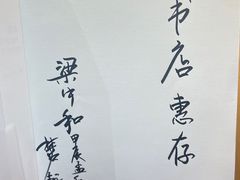 书店惠存
梁中和
甲辰孟
哲